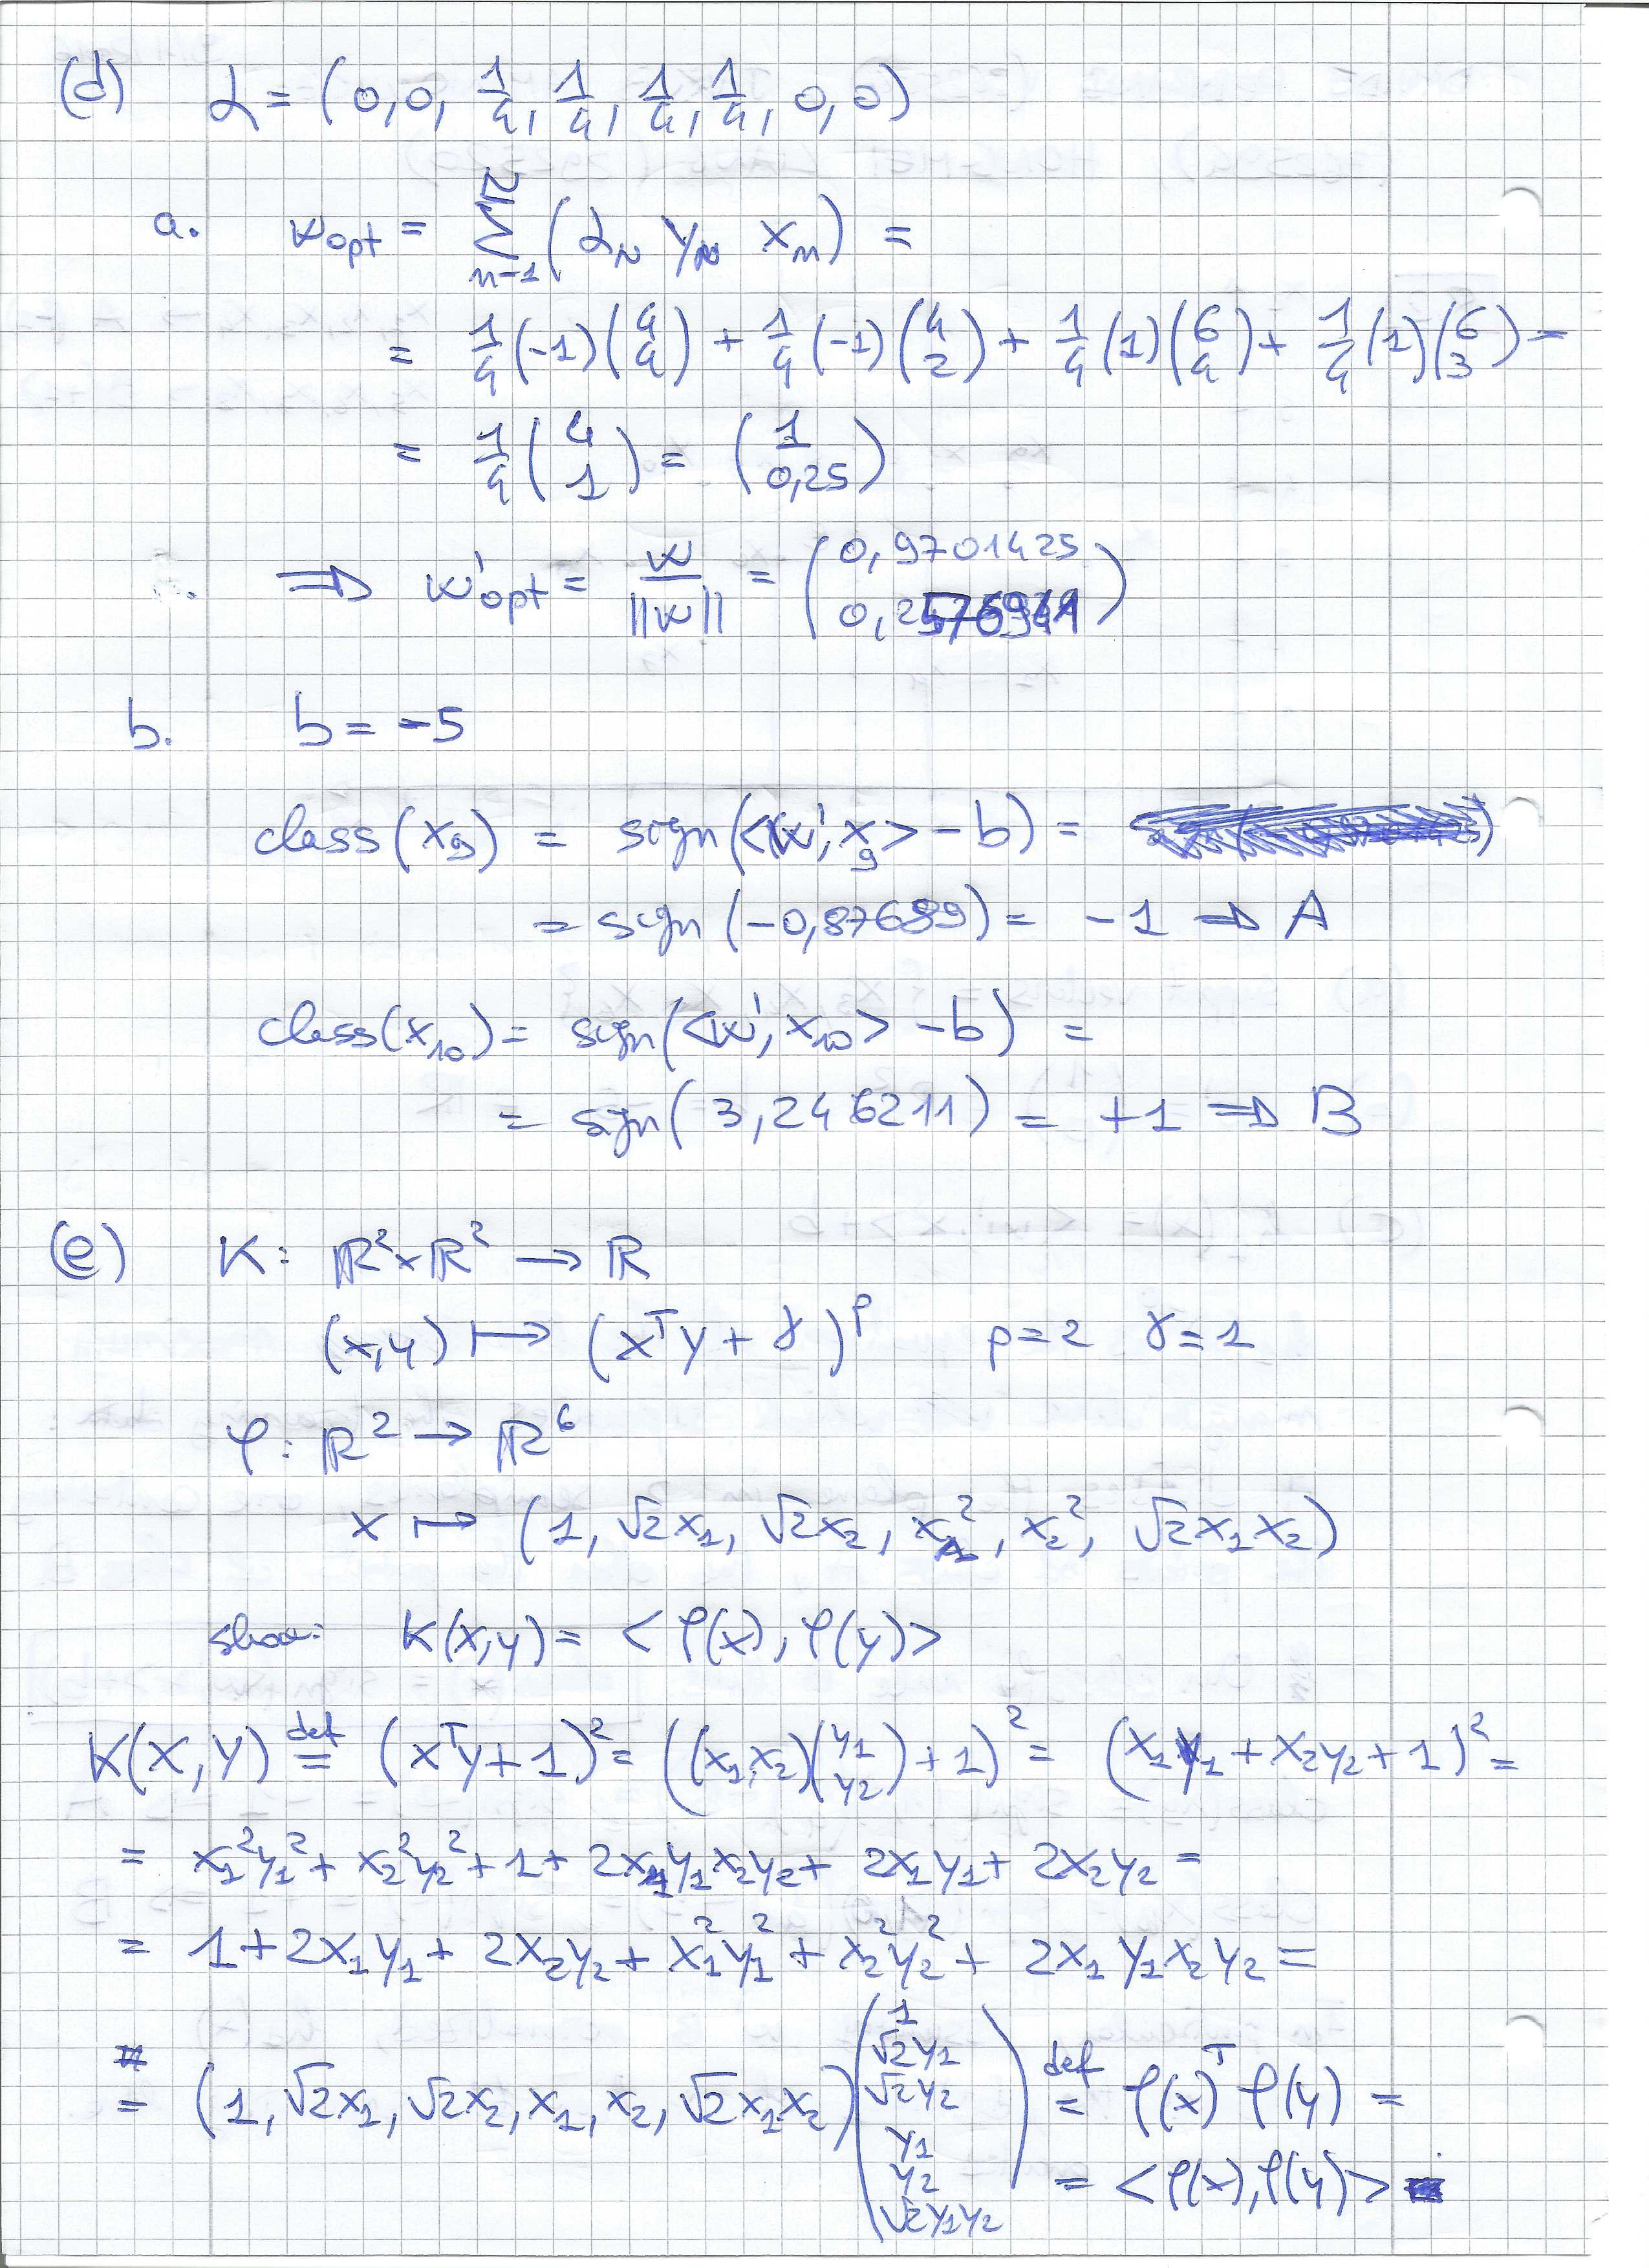 (d) α = (0, 0, 1/4, 1/4, 1/4, 1/4, 0, 0)
a. w_opt = Σ_{n=1}^{N} (α_n y_n x_n) =
= 1/4 (-1) (4 4) + 1/4 (-1) (4 2) + 1/4 (1) (6 4) + 1/4 (1) (6 3) =
= 1/4 (4 1) = (1 0,25)
⇒ w'_opt = w/||w|| = (0,9701425
b. b = -5
class(x₉) = sign(<w', x₉> - b) =
= sign(-0,87689) = -1 ⇒ A
class(x₁₀) = sign(<w', x₁₀> - b) =
= sign(3,246211) = +1 ⇒ B
(e) K: ℝ² × ℝ² → ℝ
(x,y) ↦ (xᵀy + γ)ᵖ p=2 γ=1
φ: ℝ² → ℝ⁶
x ↦ (1, √2x₁, √2x₂, x₁², x₂², √2x₁x₂)
show: K(x,y) = <φ(x), φ(y)>
K(x,y) def= (xᵀy + 1)² = ((x₁,x₂)(y₁ y₂) + 1)² = (x₁y₁ + x₂y₂ + 1)² =
= x₁²y₁² + x₂²y₂² + 1 + 2x₁y₁x₂y₂ + 2x₁y₁ + 2x₂y₂ =
= 1 + 2x₁y₁ + 2x₂y₂ + x₁²y₁² + x₂²y₂² + 2x₁y₁x₂y₂ =
= (1, √2x₁, √2x₂, x₁, x₂, √2x₁x₂) (1 √2y₁ √2y₂ y₁ y₂ √2y₁y₂) def= φ(x)ᵀ φ(y) =
= <φ(x), φ(y)>